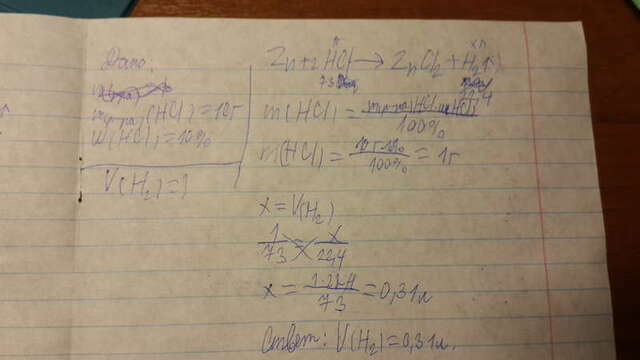 Дано:
m р-ра (HCl) = 10г
w(HCl) = 10%
V(H₂) = ?
x л
Zn + 2HCl → ZnCl₂ + H₂↑
73
22,4
m(HCl) = m р-ра (HCl) · w(HCl) / 100%
m(HCl) = 10г · 10% / 100% = 1г
x = V(H₂)
1/73 = x/22,4
x = 1·22,4 / 73 = 0,31л
Ответ: V(H₂) = 0,31л.